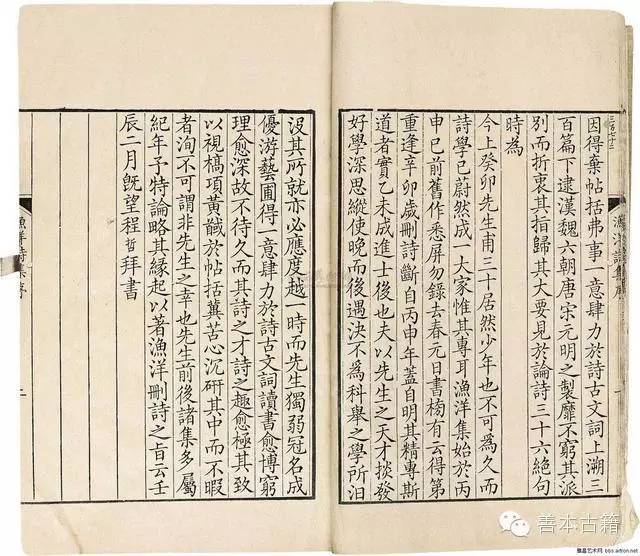 三百七十三
漁洋詩集序
因得棄帖括弗事一意肆力於詩古文詞上溯三
百篇下逮漢魏六朝唐宋元明之製靡不窮其派
別而折衷其指歸其大要見於論詩三十六絕句
時為
今上癸卯先生甫三十居然少年也不可為久而
詩學已蔚然成一大家惟其專耳漁洋集始於丙
申已前舊作悉屏勿錄去春元日書榜有云得第
重逢辛卯歲刪詩斷自丙申年蓋自明其精專斯
道者實乙未成進士後也夫以先生之天才掞發
好學深思縱使晚而後遇決不為科舉之學所汩
沒其所就亦必應度越一時而先生獨弱冠名成
優游藝圃得一意肆力於詩古文詞讀書愈博窮
理愈深故不待久而其詩之才詩之趣愈極其致
以視槁項黃馘於帖括冀苦心沉研其中而不暇
者洵不可謂非先生之幸也先生前後諸集多屬
紀年予特論略其緣起以著漁洋刪詩之旨云壬
辰二月旣望程哲拜書
漁洋詩集序
二
善本古籍
雅昌艺术网 bbs.artron.net